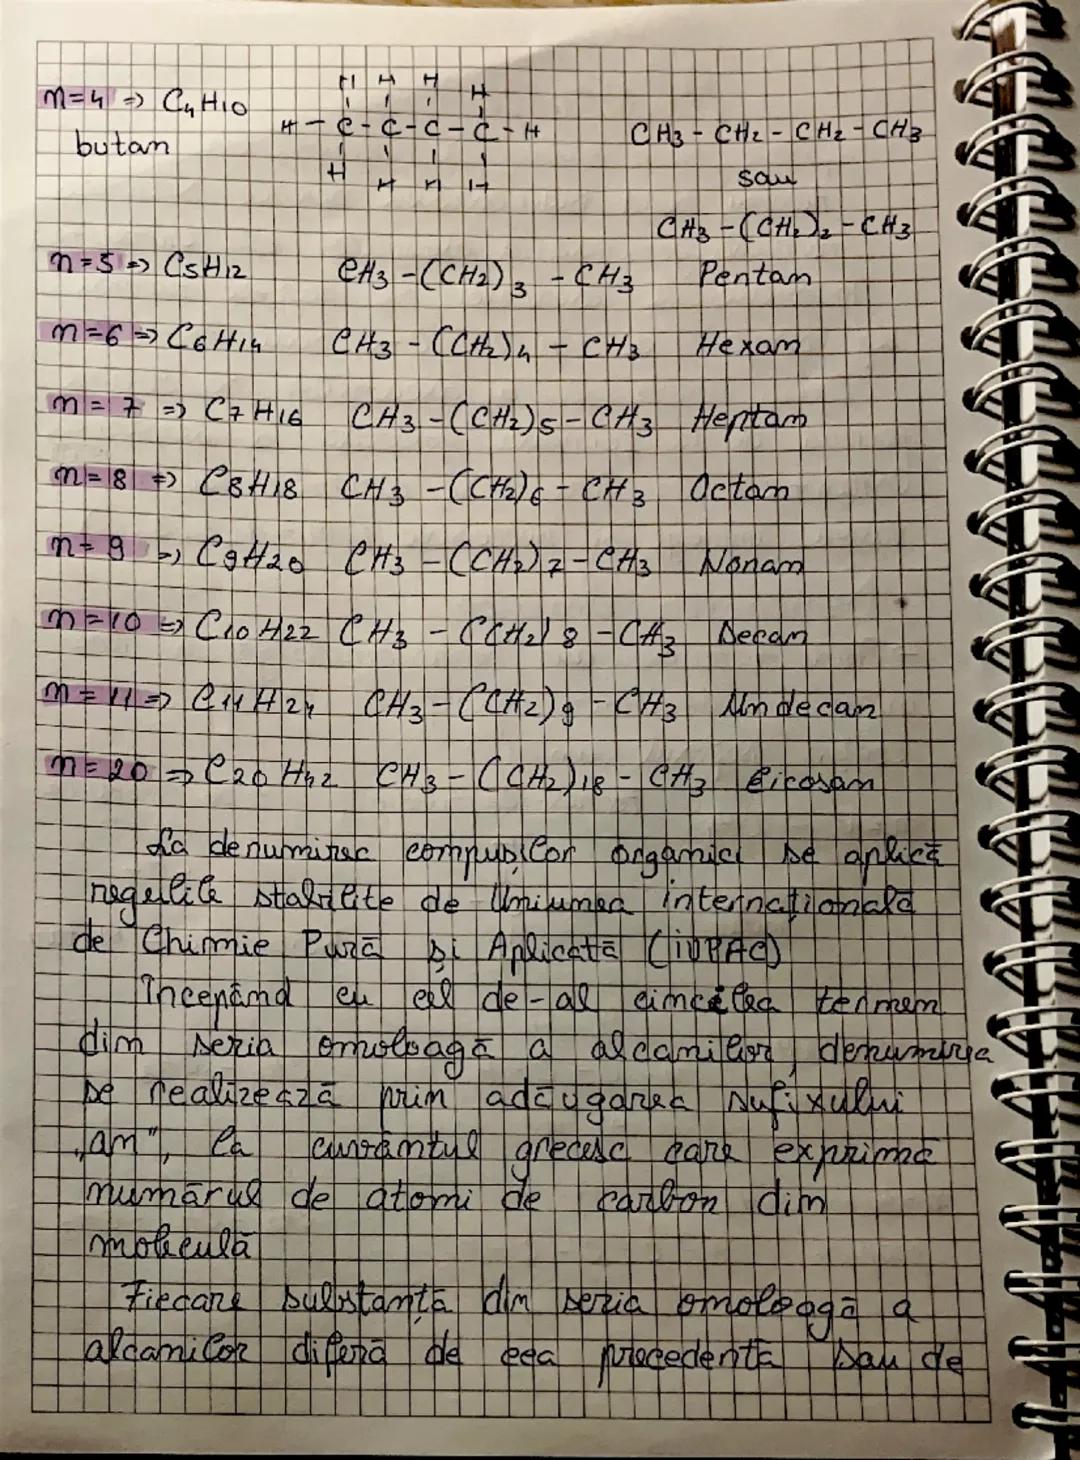 n=4 => C4H10
butan
H H H H
H - C - C - C - C - H
H H H H
CH3 - CH2 - CH2 - CH3
sau
CH3 - (CH2)2 - CH3
n=5 => C5H12 CH3 - (CH2)3 - CH3 Pentan
n=6 => C6H14 CH3 - (CH2)4 - CH3 Hexan
n=7 => C7H16 CH3 - (CH2)5 - CH3 Heptan
n=8 => C8H18 CH3 - (CH2)6 - CH3 Octan
n=9 => C9H20 CH3 - (CH2)7 - CH3 Nonan
n=10 => C10H22 CH3 - (CH2)8 - CH3 Decan
n=11 => C11H24 CH3 - (CH2)9 - CH3 Undecan
n=20 => C20H42 CH3 - (CH2)18 - CH3 Eicosan
La denumirea compușilor organici se aplică
regulile stabilite de Uniunea internațională
de Chimie Pură și Aplicată (iUPAC)
Începând cu cel de-al cincilea termen
din seria omoloagă a alcanilor, denumirea
se realizează prin adăugarea sufixului
„an", la cuvântul grecesc care exprimă
numărul de atomi de carbon din
moleculă
Fiecare substanță din seria omoloagă a
alcanilor diferă de cea precedentă sau de